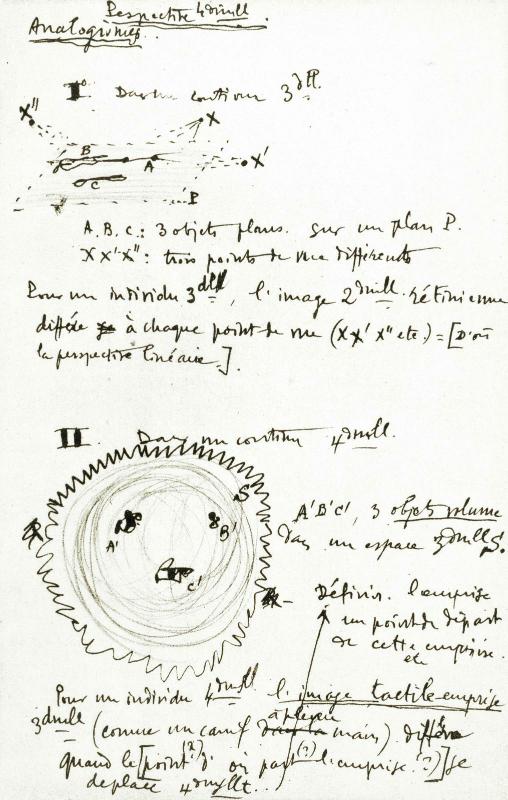 Perspective 4dimll.
Analogismes.
I° Dans un continu 3dll.
X"
X
B
A
X'
C
P
A. B. C.: 3 objets plans. sur un plan P.
X X' X": trois points de vue différents
Pour un individu 3dll, l'image 2dimll. rétinienne
diffère à chaque point de vue (X X' X" etc.) = [D'où
la perspective linéaire.].
II. Dans un continu 4dimll.
S
A'
B'
C'
A'B'C', 3 objets volume
dans un espace 3dimll S.
Définir. l'emprise
un point de départ
de cette emprise.
etc
Pour un individu 4dimll l'image tactile-emprise
3dimll (comme un canif à pleine main) diffère
quand le [point (?) d'où part (?) l'emprise (?)] se
déplace 4dimllt.